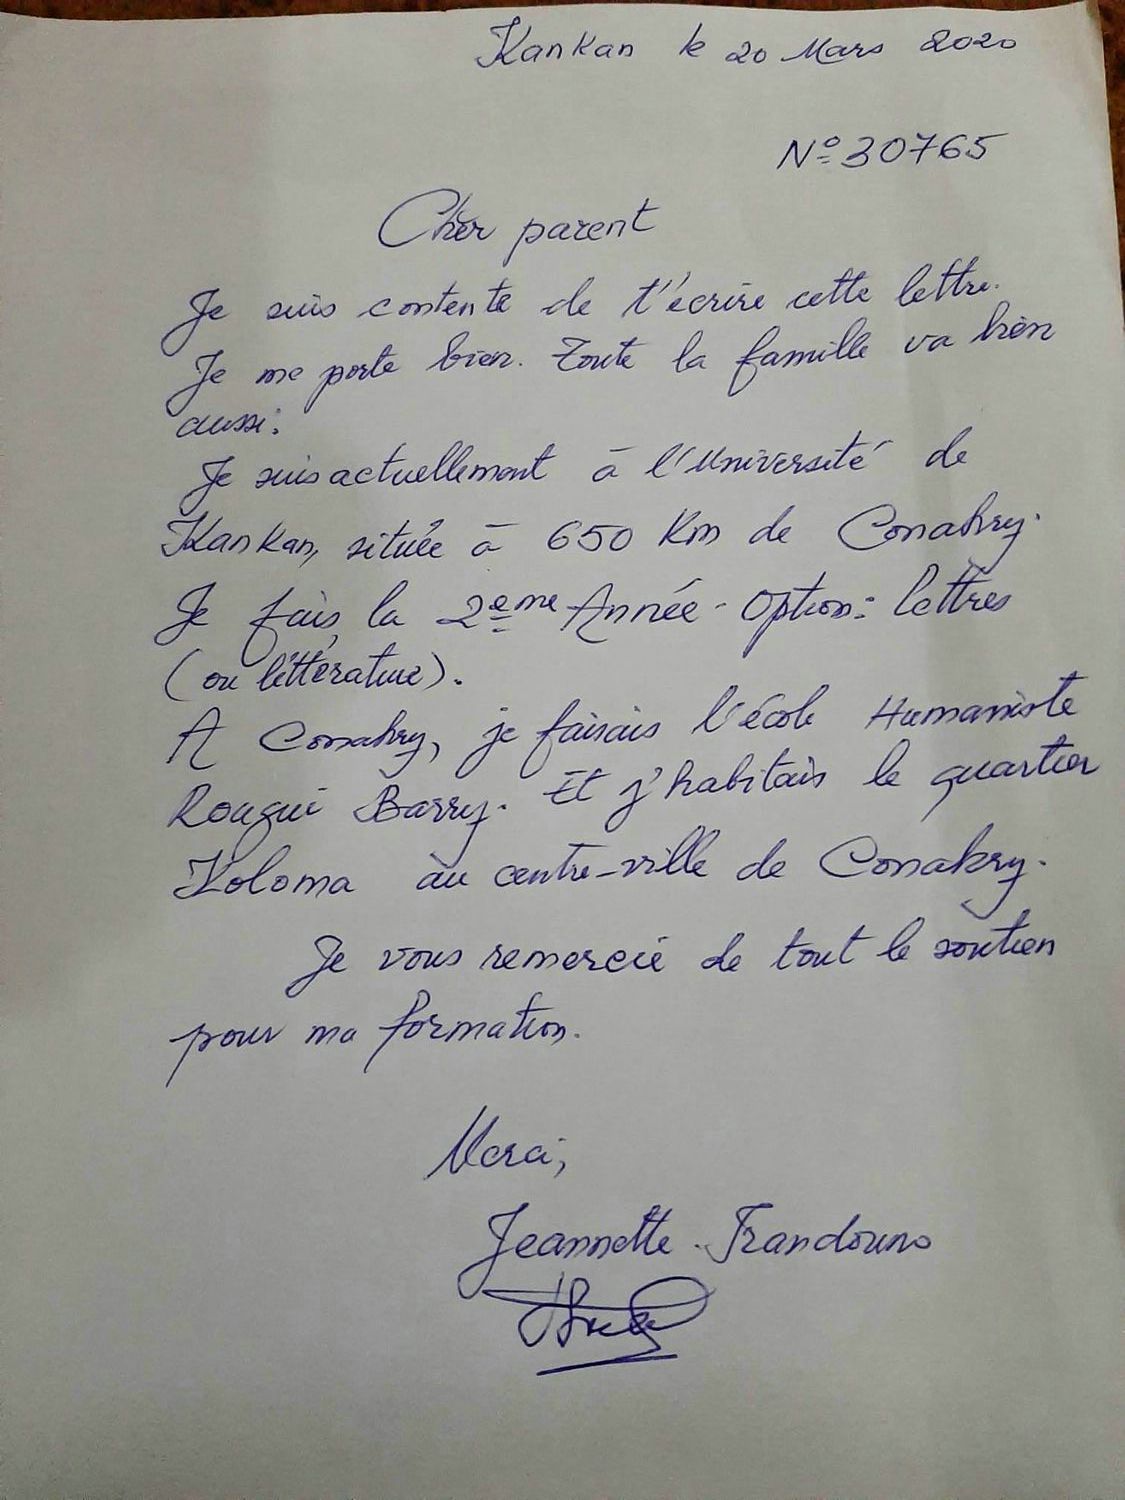 Kankan le 20 Mars 2020
Nº 30765
Cher parent
Je suis contente de t'écrire cette lettre.
Je me porte bien. Toute la famille va bien
aussi.
Je suis actuellement à l'Université de
Kankan, située à 650 Km de Conakry.
Je fais la 2eme Année - Option: lettres
(ou littérature).
A Conakry, je faisais l'école Humaniste
Rougui Barry. Et j'habitais le quartier
Koloma au centre-ville de Conakry.
Je vous remercie de tout le soutien
pour ma formation.
Merci,
Jeannette Frandouno